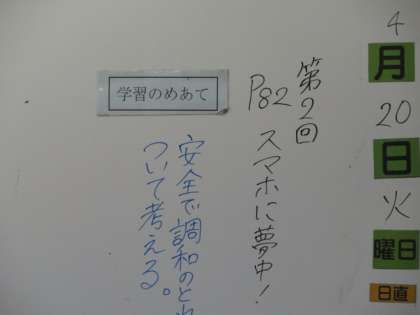 4
月
20
日
火
曜日
日直
第2回
P82 スマホに夢中!
学習のめあて
安全で調和のと
ついて考える。